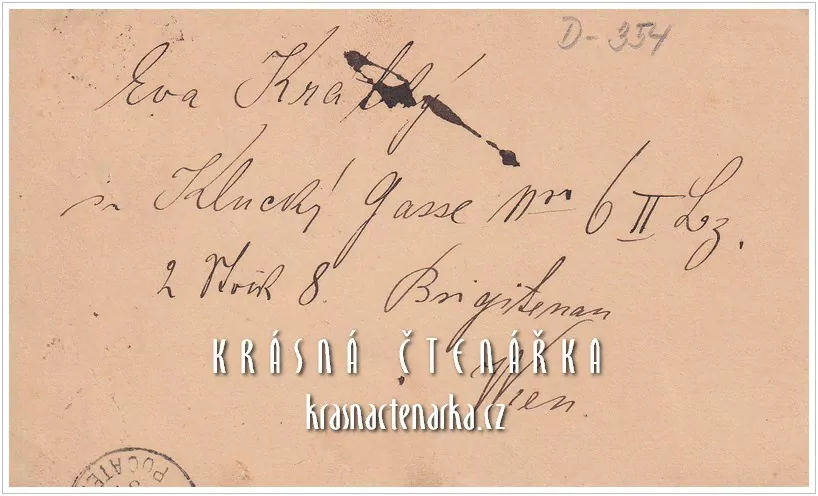 D-354
Eva
in Klucký Gasse Nro 6 II Lz.
2 Stock 8. Brigitenau
KRÁSNÁ ČTENÁŘKA
Wien.
krasnactenarka.cz
POČÁTE